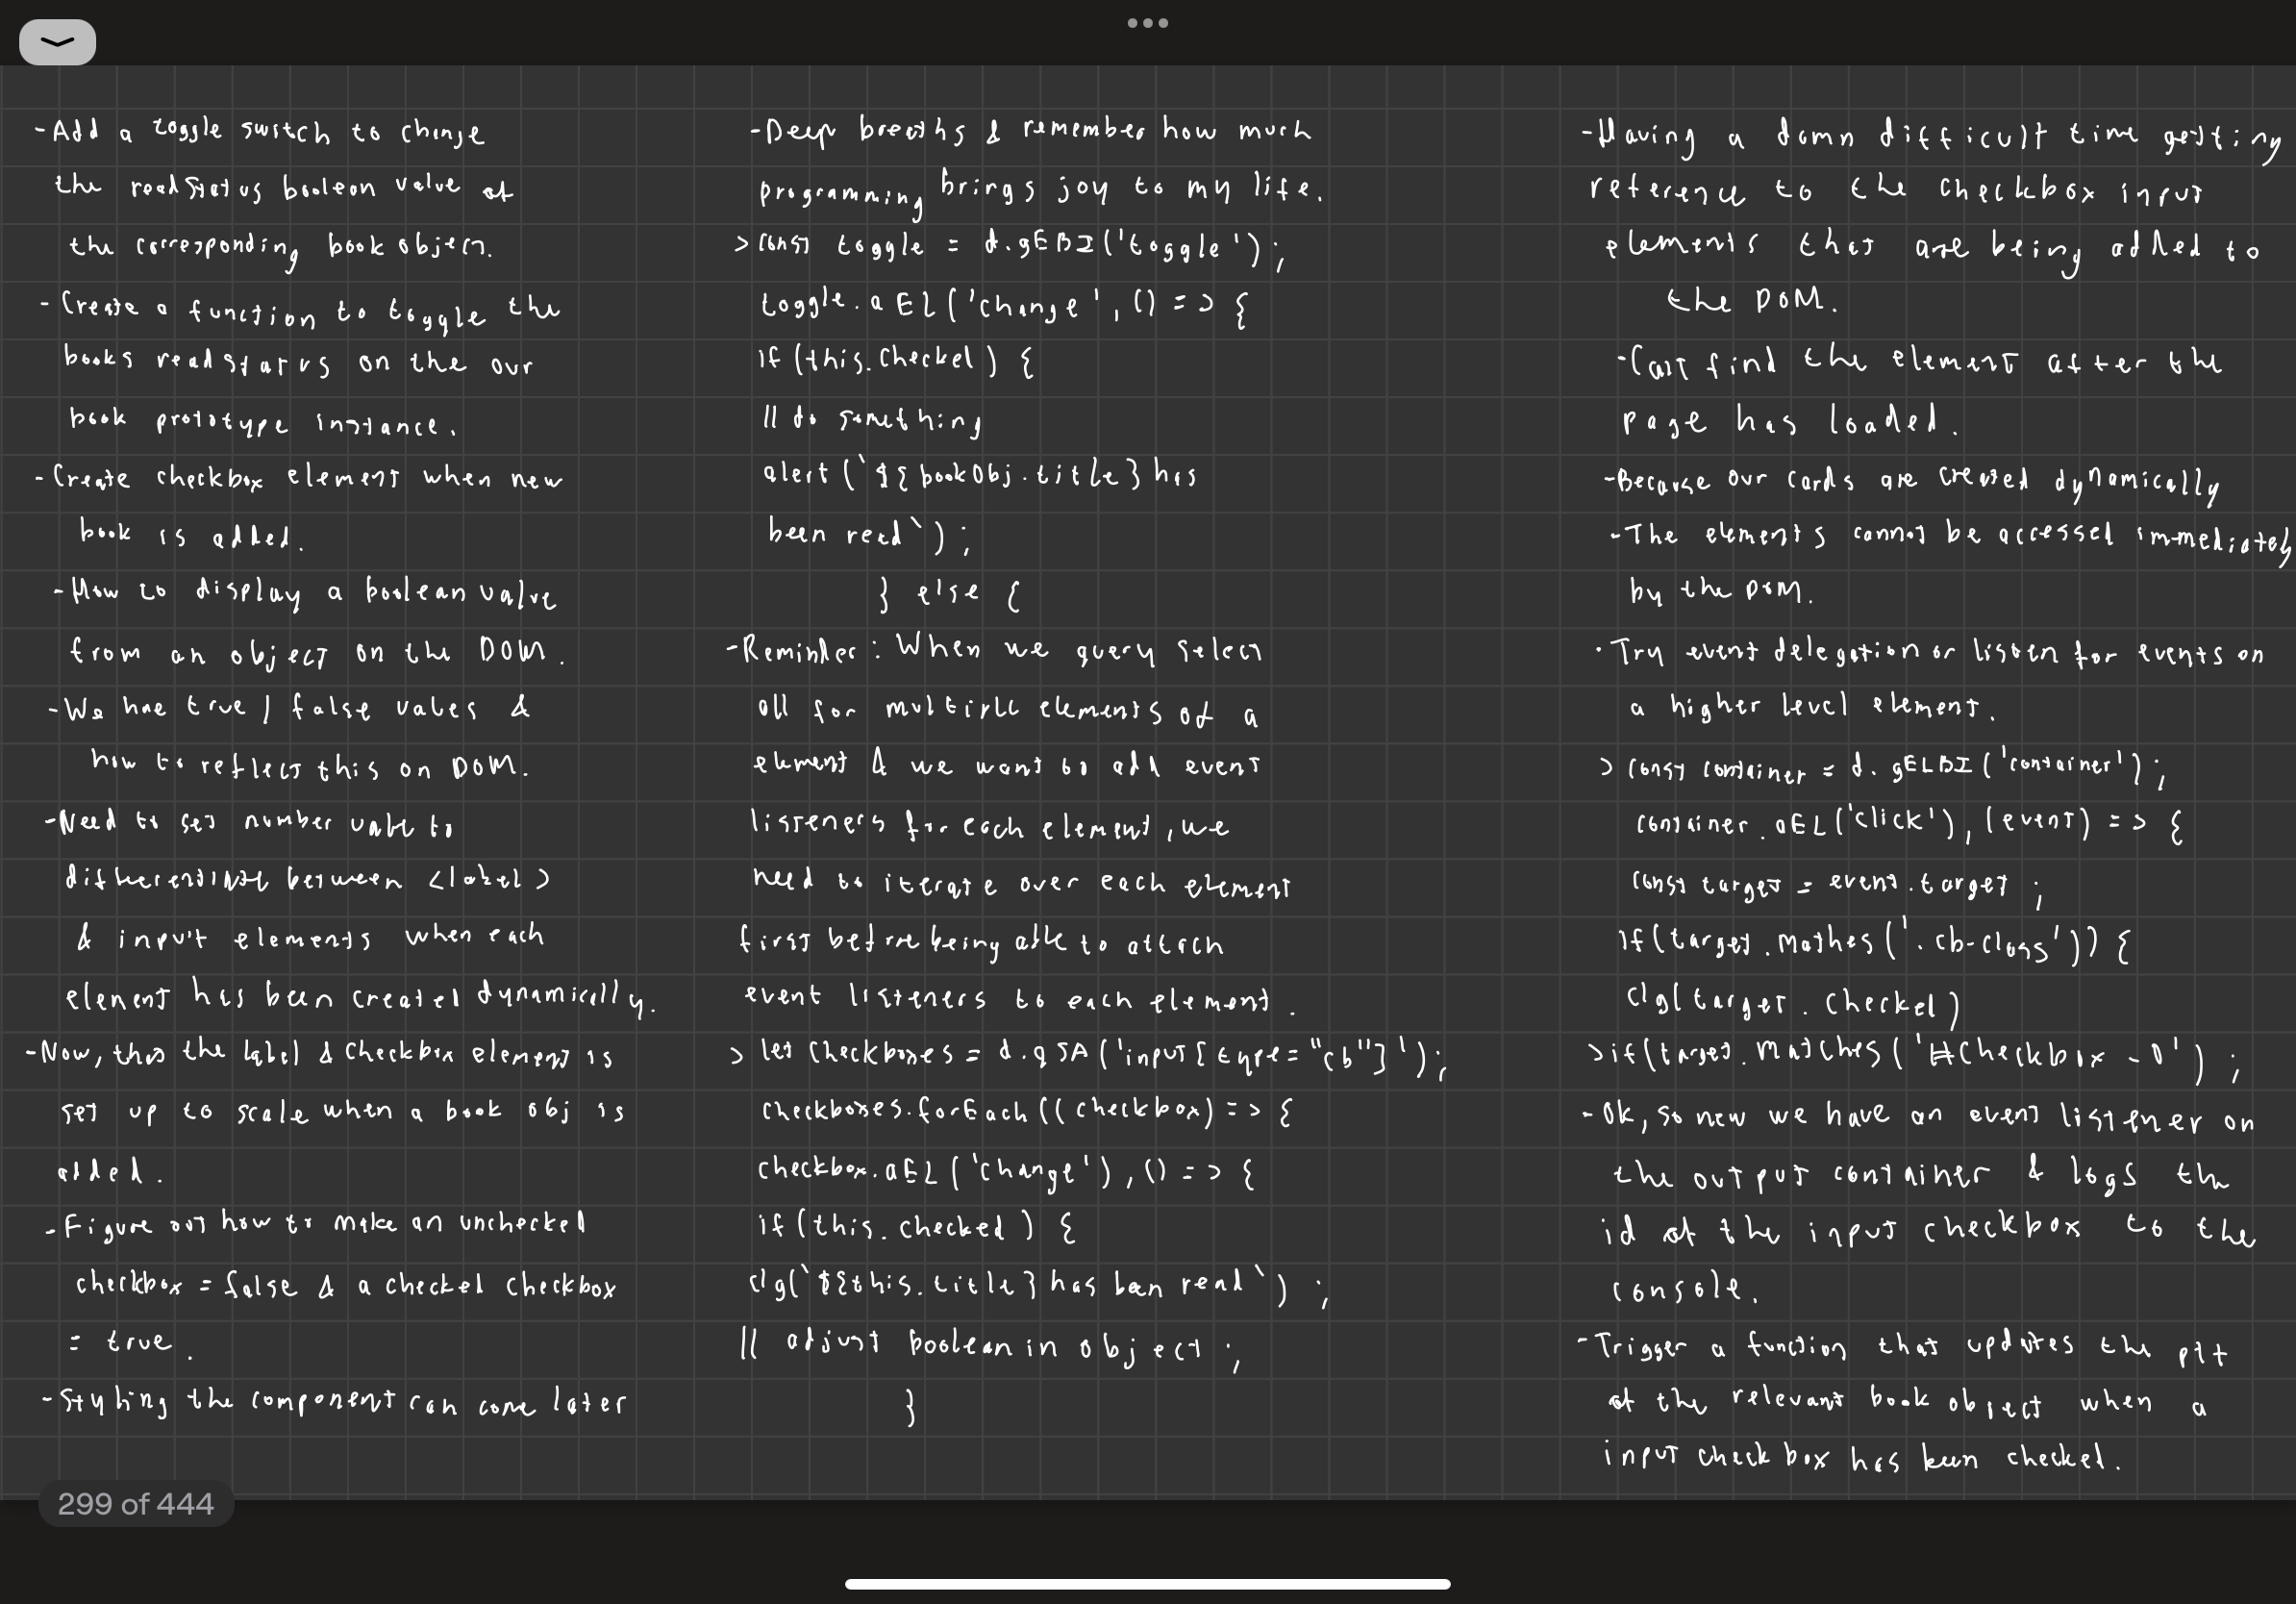 -Add a toggle switch to change
the readStatus boolean value of
the corresponding book object.
- Create a function to toggle the
books readstatus on the our
book prototype instance.
- Create checkbox element when new
book is added.
- How to display a boolean value
from an object on the DOM.
- We have true / false values &
how to reflect this on DOM.
-Need to set number value to
differentiate between <label>
& input elements when each
element has been created dynamically.
-Now, the label & checkbox element is
set up to scale when a book obj is
added.
- Figure out how to make an unchecked
checkbox = false & a checked checkbox
= true.
- Styling the component can come later
-Deep breaths & remember how much
programming brings joy to my life.
> const toggle = d.gEBI('toggle');
toggle.aEL('change', () => {
if (this.checked) {
// do something
alert(`${bookObj.title} has
been read`);
} else {
-Reminder: When we query select
all for multiple elements of a
element & we want to add event
listeners for each element, we
need to iterate over each element
first before being able to attach
event listeners to each element.
> let checkboxes = d.qSA('input[type="cb"]');
checkboxes.forEach((checkbox) => {
checkbox.aEL('change'), () => {
if (this.checked) {
clg(`${this.title} has been read`);
// adjust boolean in object;
}
-Having a damn difficult time getting
reference to the checkbox input
elements that are being added to
the DOM.
-Cant find the element after the
page has loaded.
-Because our cards are created dynamically
-The elements cannot be accessed immediately
by the DOM.
-Try event delegation or listen for events on
a higher level element.
> const container = d.gELBI('container');
container.aEL('click'), (event) => {
const target = event.target;
if(target.mathes('.cb-class')) {
clg(target.checked)
>if(target.matches('#Checkbox-0');
-Ok, so now we have an event listener on
the output container & logs the
id of the input checkbox to the
console.
-Trigger a function that updates the
of the relevant book object when a
input checkbox has been checked.
299 of 444